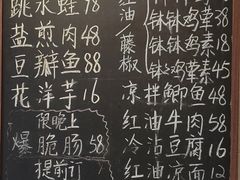 跳水蛙78
盐煎肉48
豆瓣鱼88
花洋芋16
限晚上
爆脆肠58
提前订
红油/藤椒
钵钵鸡荤38
钵钵鸡素18
钵钵鸡荤
钵钵鸡素45
凉拌鲫鱼48
红油牛肉58
冷沾豆腐16
红油凉面12